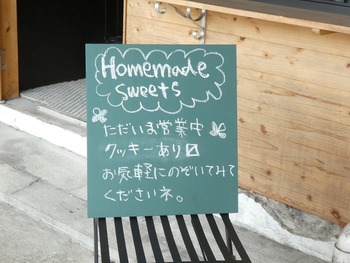 Homemade
sweets
ただいま営業中
クッキーあり〼
お気軽にのぞいてみて
くださいネ。